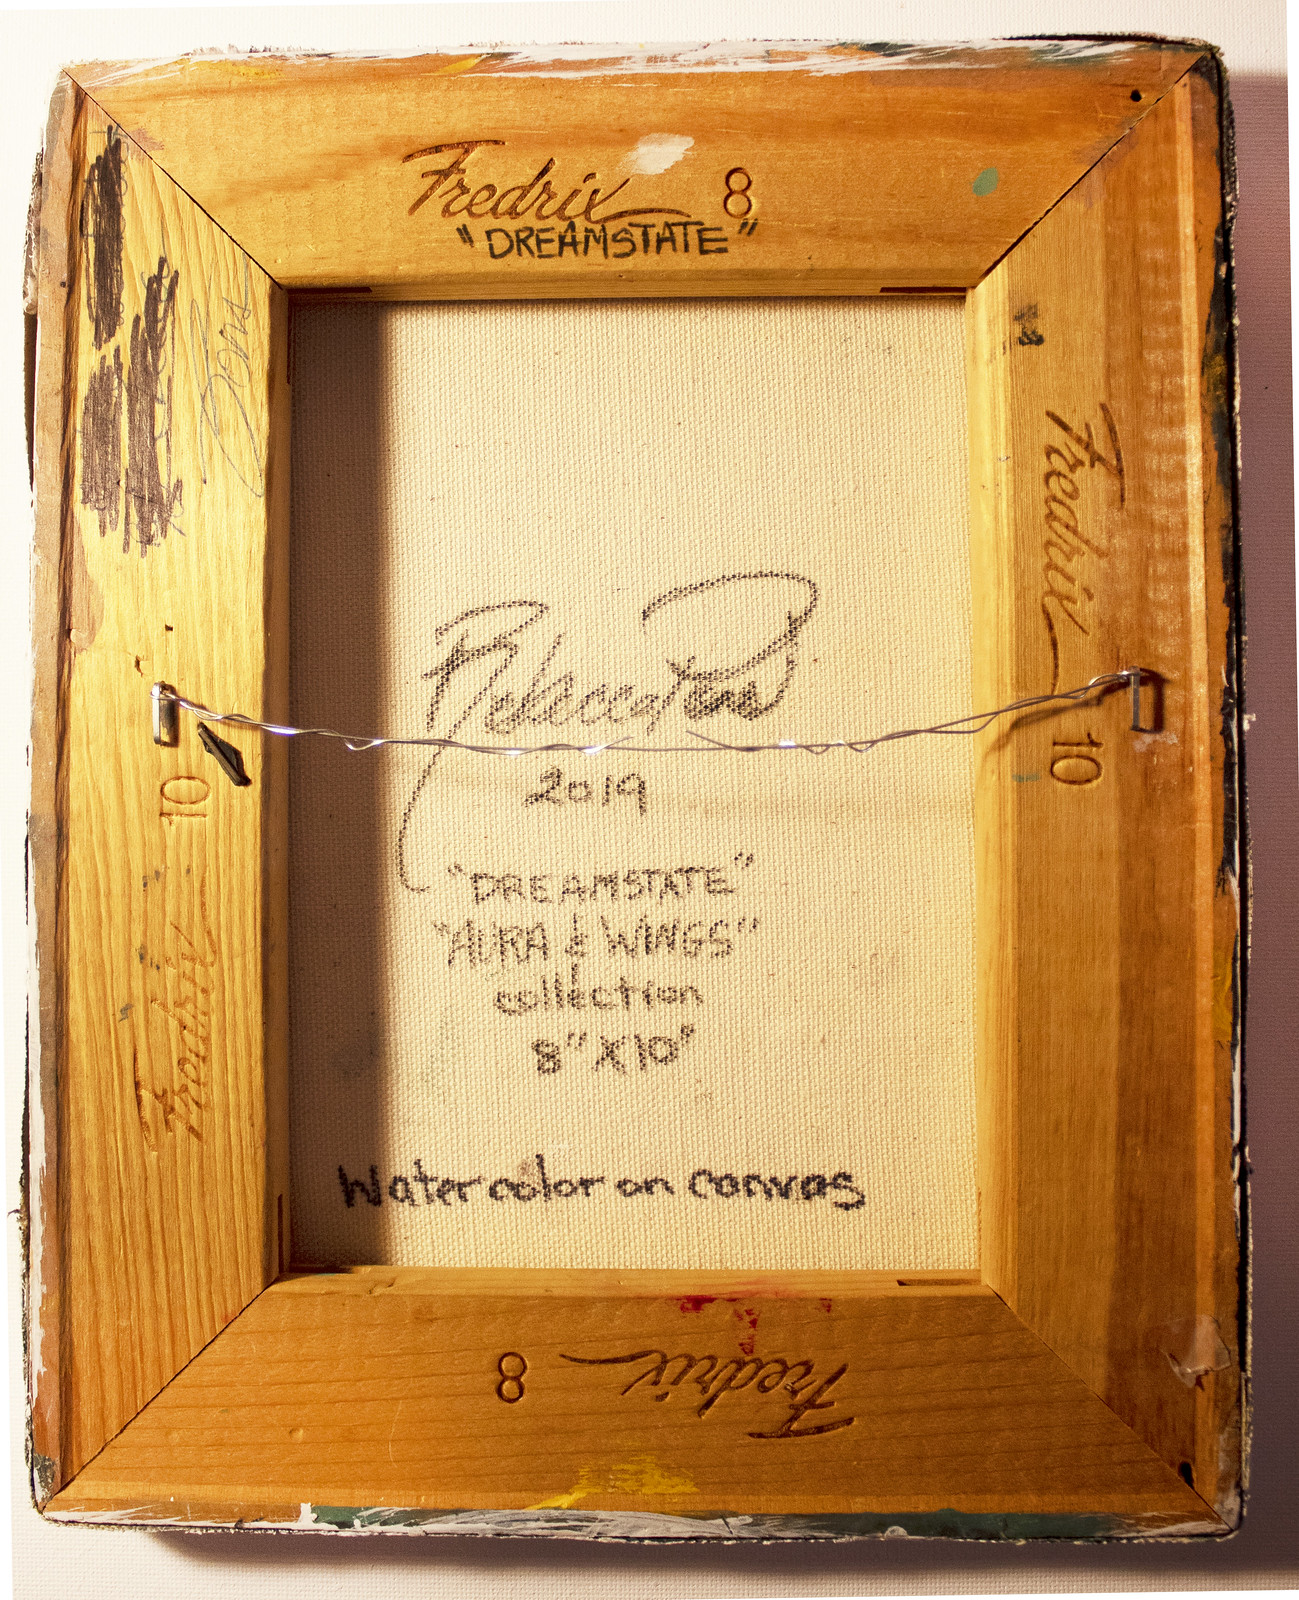 Fredrix 8
"DREAMSTATE"
Fredrix
10
10
Fredrix
Rebecca
2019
"DREAMSTATE"
"AURA & WINGS"
collection
8" X 10"
Watercolor on canvas
8 Fredrix